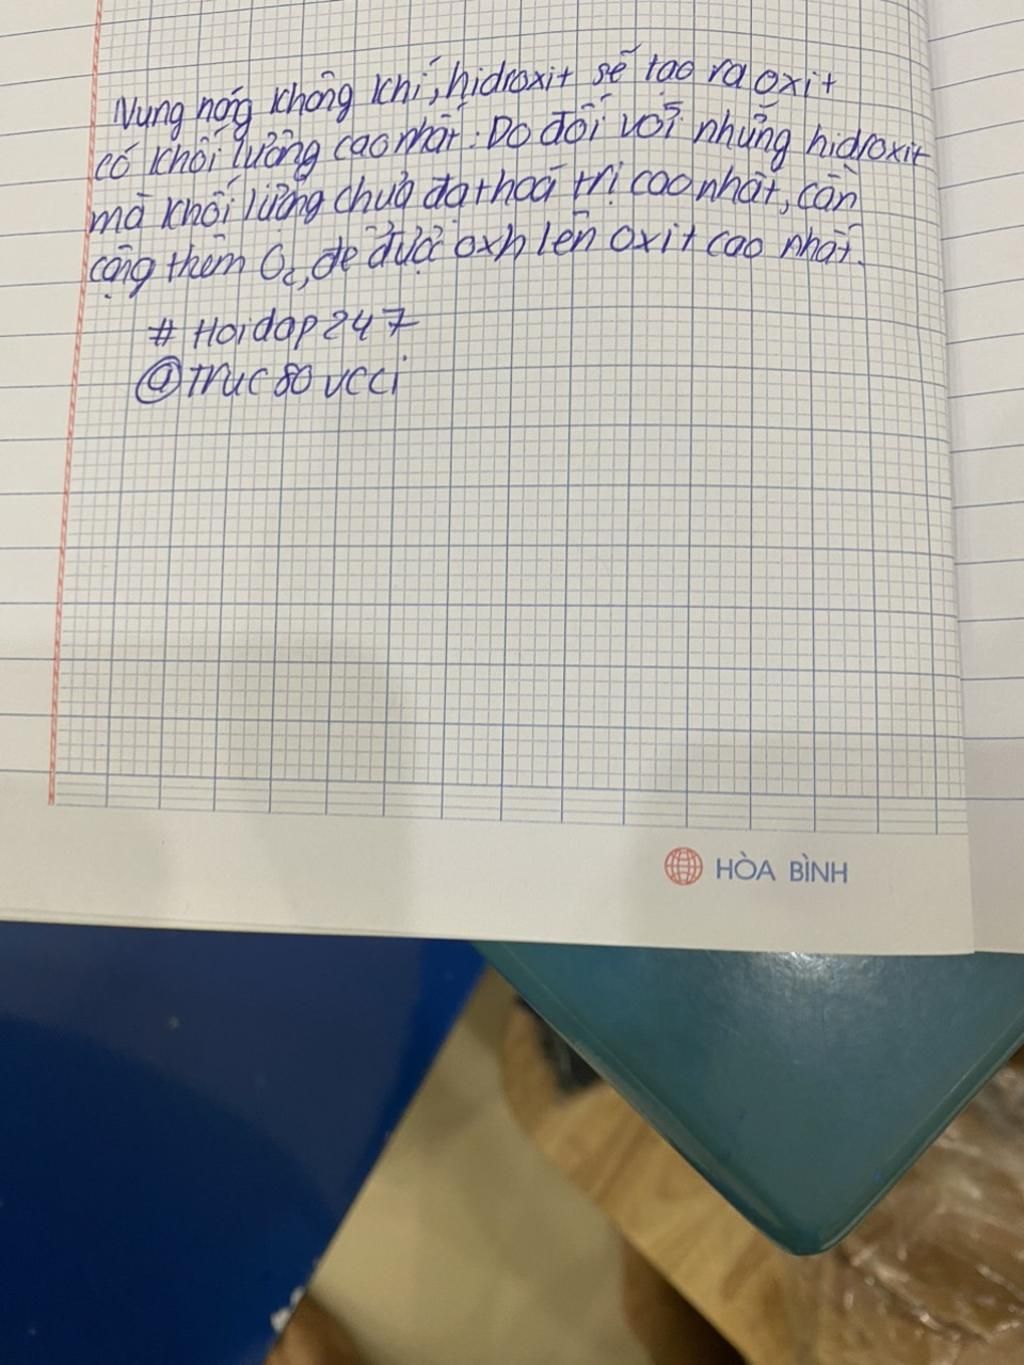 Nung nóng không khí, hidroxit sẽ tạo ra oxit
có khối lượng cao nhất. Do đối với những hidroxit
mà khối lượng chưa đạt hoá trị cao nhất, cần
cộng thêm O₂, để được oxh lên oxit cao nhất.
# Hoidap247
@truc80vcci
HÒA BÌNH